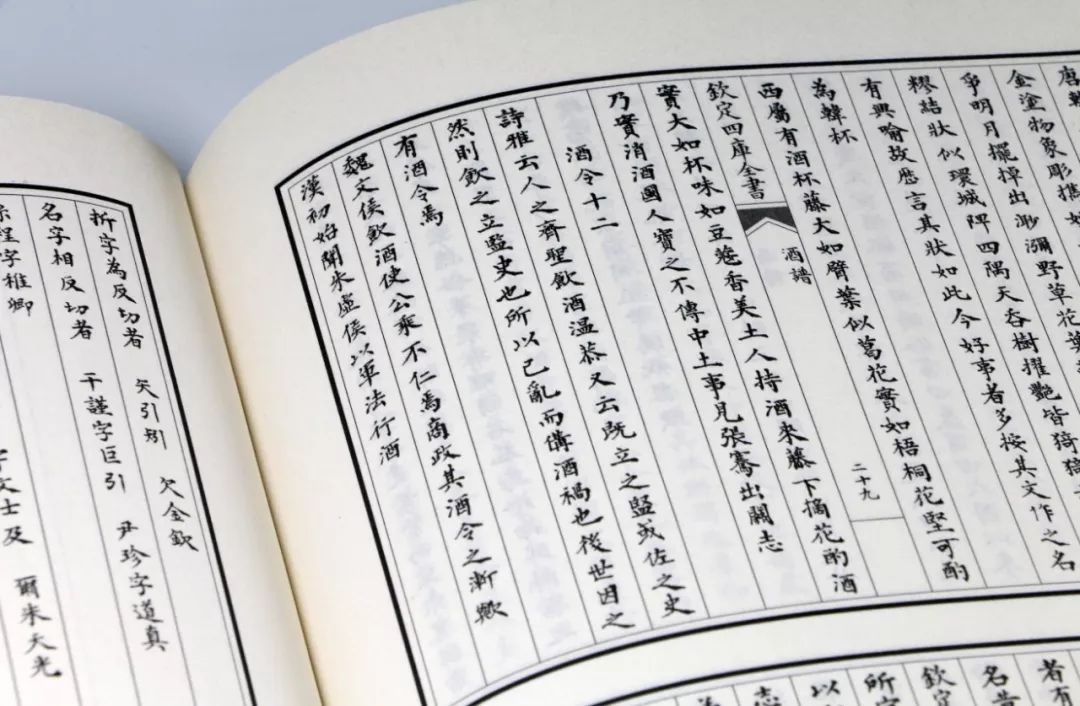 唐韓
金塗物象彫樵妙
爭明月擺掉出渺瀰野草花蔓
糝結狀似環城陴四隅天吞樹擢艷皆猗猗
有興喻故歷言其狀如此今好事者多按其文作之名
為韓杯
西屬有酒杯藤大如臂葉似葛花實如梧桐花堅可酌
欽定四庫全書 酒譜 二十九
實大如杯味如豆蔻香美土人持酒來藤下摘花酌酒
乃實消酒國人寶之不傳中土事見張騫出關志
酒令十二
詩雅云人之齊聖飲酒溫恭又云既立之監或佐之史
然則飲之立監史也所以已亂而備酒禍也後世因之
有酒令焉
魏文侯飲酒使公乘不仁為商政其酒令之漸歟
漢初始聞朱虛侯以軍法行酒
者有
名昔
欽定
所
以
志
析字為反切者 矢引矧 欠金欽
名字相反切者 干謹字巨引 尹珍字道真
孫程字稚卿 宇文士及 爾朱天光